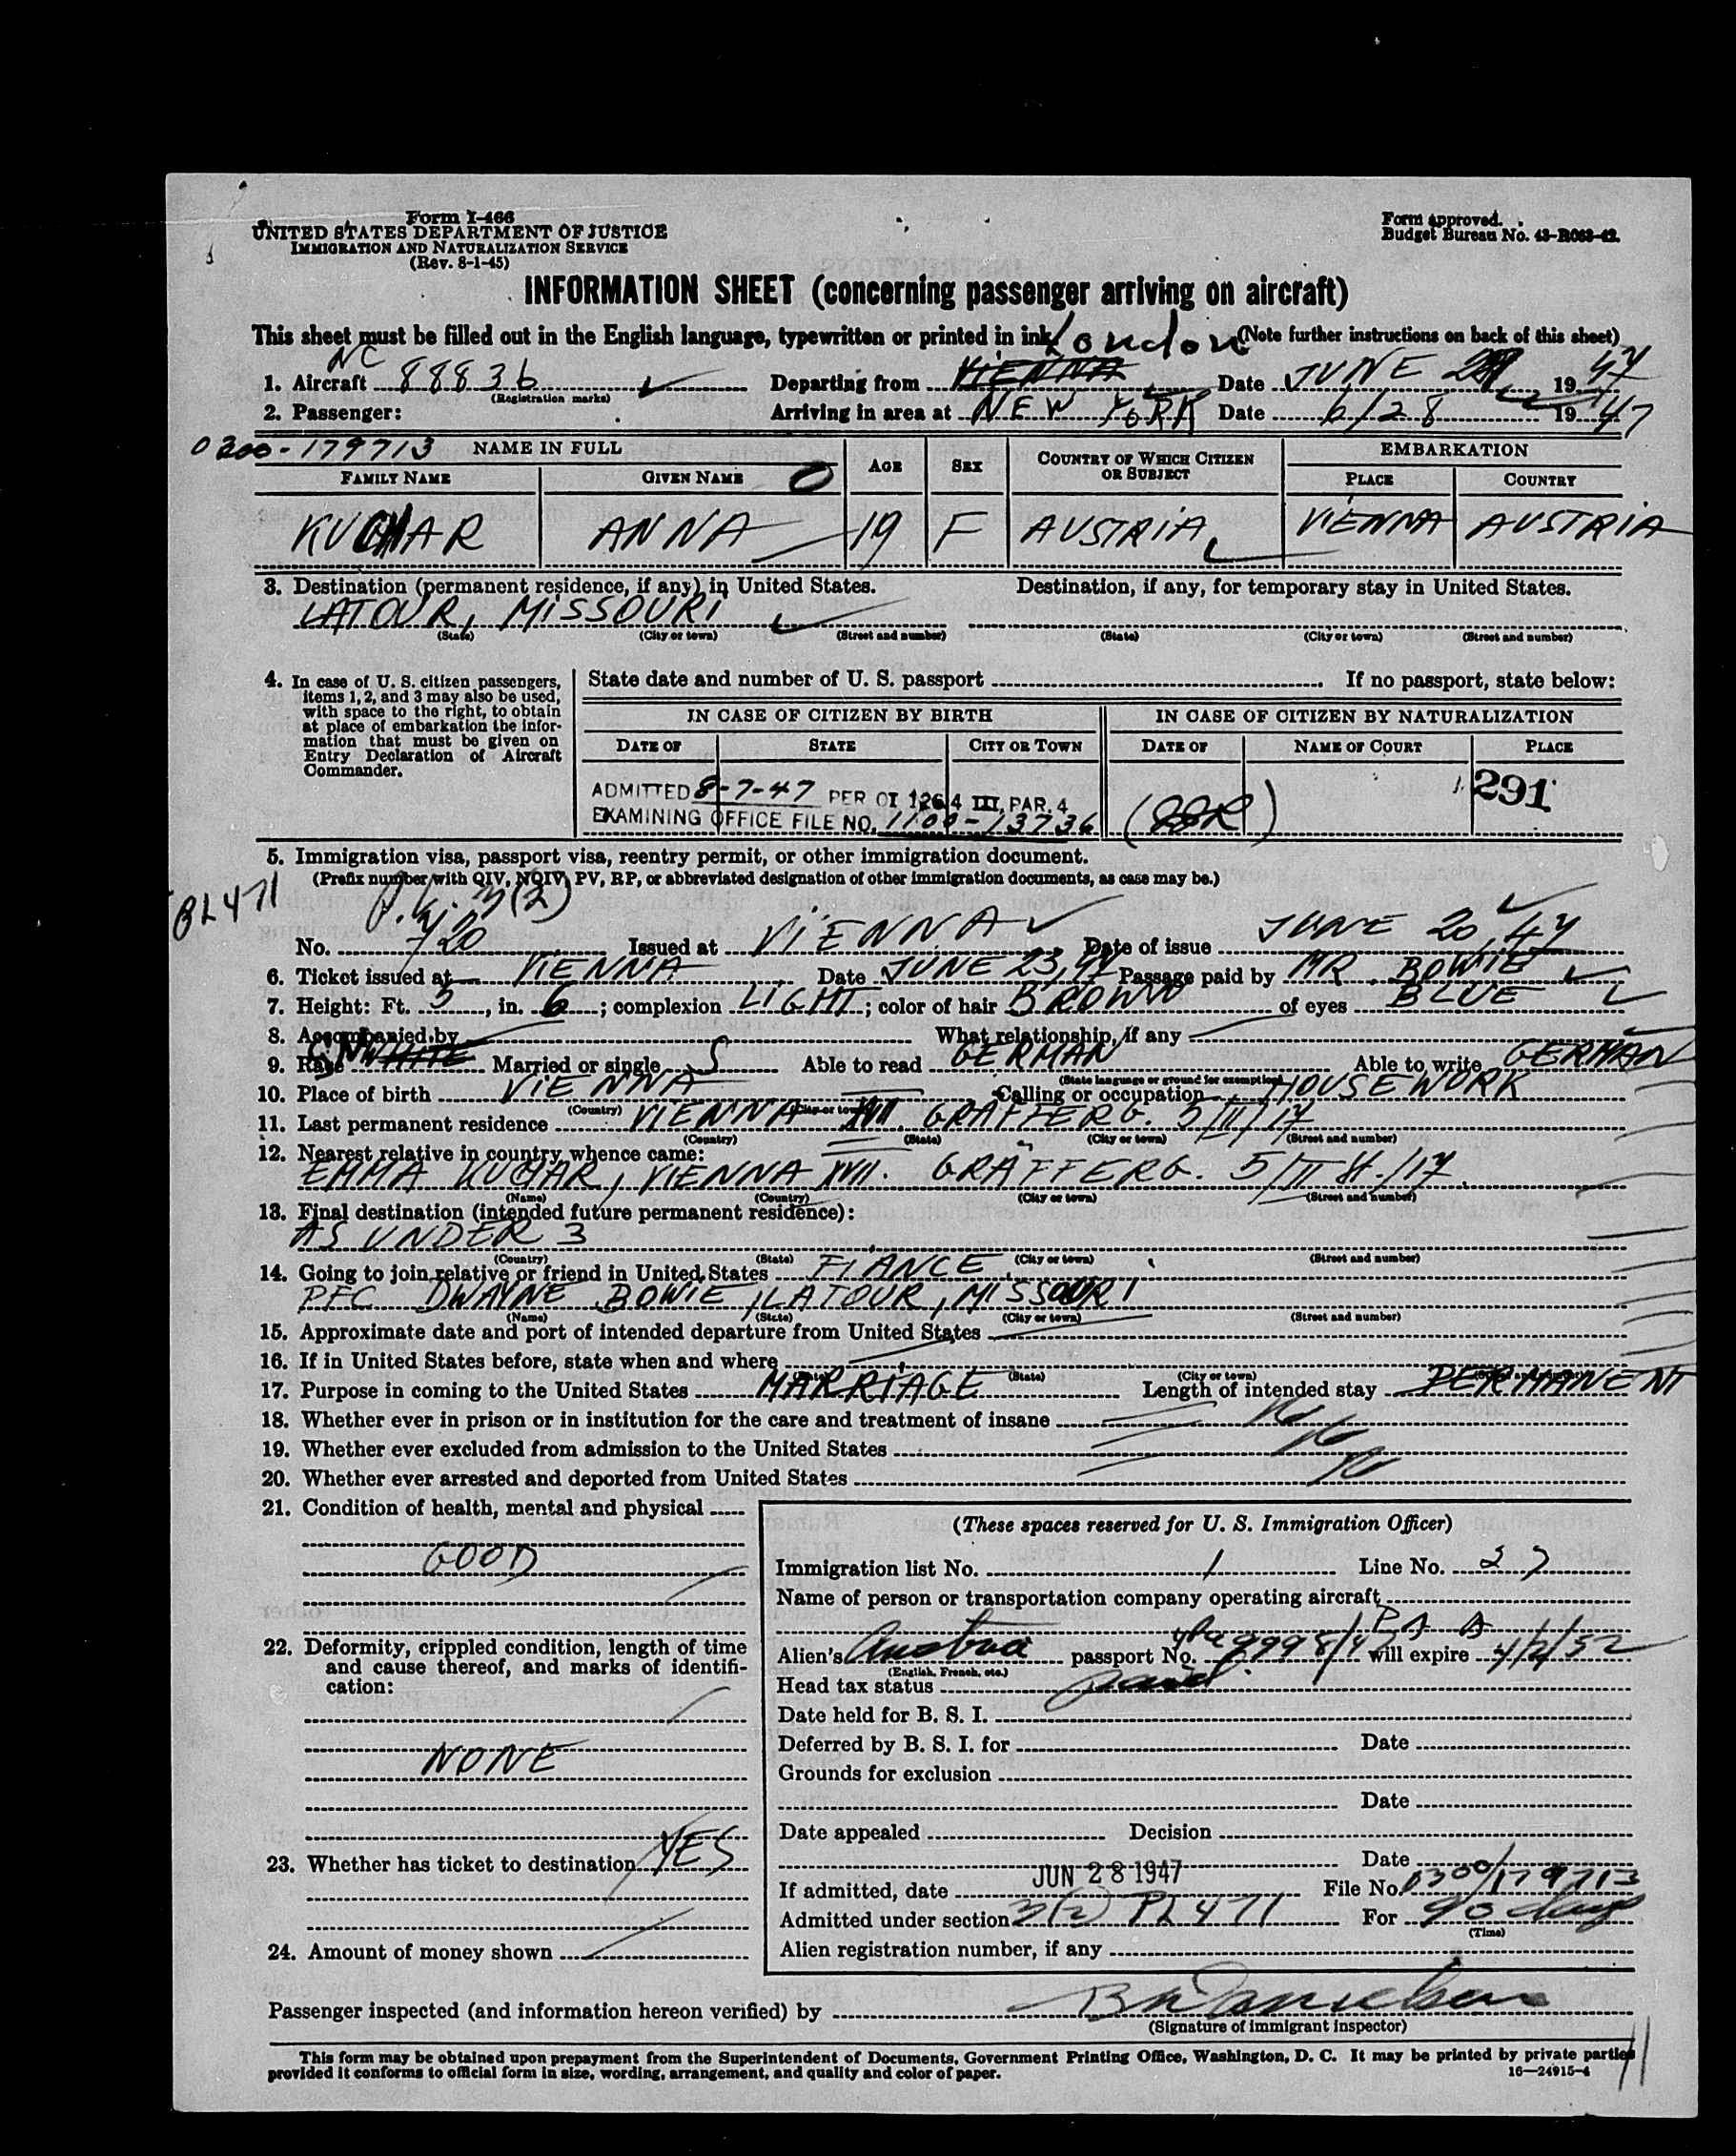 Form I-466
UNITED STATES DEPARTMENT OF JUSTICE
IMMIGRATION AND NATURALIZATION SERVICE
(Rev. 8-1-45)
Form approved.
Budget Bureau No. 43-R063-42.
INFORMATION SHEET (concerning passenger arriving on aircraft)
This sheet must be filled out in the English language, typewritten or printed in ink. London (Note further instructions on back of this sheet)
1. Aircraft NC 88836 Departing from VIENNA Date JUNE 1947
(Registration marks)
2. Passenger: Arriving in area at NEW YORK Date 6/28 1947
0300-179713 NAME IN FULL AGE SEX COUNTRY OF WHICH CITIZEN OR SUBJECT EMBARKATION
FAMILY NAME GIVEN NAME PLACE COUNTRY
KUCHAR ANNA 19 F AUSTRIA VIENNA AUSTRIA
3. Destination (permanent residence, if any) in United States. Destination, if any, for temporary stay in United States.
LATOUR, MISSOURI
(State) (City or town) (Street and number) (State) (City or town) (Street and number)
4. In case of U. S. citizen passengers, items 1, 2, and 3 may also be used, with space to the right, to obtain at place of embarkation the information that must be given on Entry Declaration of Aircraft Commander.
State date and number of U. S. passport If no passport, state below:
IN CASE OF CITIZEN BY BIRTH IN CASE OF CITIZEN BY NATURALIZATION
DATE OF STATE CITY OR TOWN DATE OF NAME OF COURT PLACE
ADMITTED 8-7-47 PER OI 126.4 III, PAR. 4 291
EXAMINING OFFICE FILE NO. 1100-13736
5. Immigration visa, passport visa, reentry permit, or other immigration document.
(Prefix number with QIV, NQIV, PV, RP, or abbreviated designation of other immigration documents, as case may be.)
PL 471
P.V. 3(2)
No. 720 Issued at VIENNA Date of issue JUNE 20, 47
6. Ticket issued at VIENNA Date JUNE 23, 47 Passage paid by MR. BOWIE
7. Height: Ft. 5, in. 6; complexion LIGHT; color of hair BROWN of eyes BLUE
8. Accompanied by What relationship, if any
9. Race WHITE Married or single S Able to read GERMAN Able to write GERMAN
(State language or ground for exemption)
10. Place of birth VIENNA Calling or occupation HOUSEWORK
(Country) (City or town)
11. Last permanent residence VIENNA XVII. GRÄFFERG. 5/III/17
(Country) (State) (City or town) (Street and number)
12. Nearest relative in country whence came:
EMMA KUCHAR, VIENNA XVII. GRÄFFERG. 5/II St./17
(Name) (Country) (City or town) (Street and number)
13. Final destination (intended future permanent residence):
AS UNDER 3
(Country) (State) (City or town) (Street and number)
14. Going to join relative or friend in United States FIANCE
PFC DWAYNE BOWIE, LATOUR, MISSOURI
(Name) (State) (City or town) (Street and number)
15. Approximate date and port of intended departure from United States
16. If in United States before, state when and where
(State) (City or town)
17. Purpose in coming to the United States MARRIAGE Length of intended stay PERMANENT
18. Whether ever in prison or in institution for the care and treatment of insane No
19. Whether ever excluded from admission to the United States No
20. Whether ever arrested and deported from United States No
21. Condition of health, mental and physical
GOOD
22. Deformity, crippled condition, length of time and cause thereof, and marks of identification:
NONE
23. Whether has ticket to destination YES
24. Amount of money shown
(These spaces reserved for U. S. Immigration Officer)
Immigration list No. 1 Line No. 27
Name of person or transportation company operating aircraft
P A A
Alien's Austria passport No. 9998/47 will expire 4/2/52
(English, French, etc.)
Head tax status paid
Date held for B. S. I.
Deferred by B. S. I. for Date
Grounds for exclusion
Date
Date appealed Decision
Date
If admitted, date JUN 28 1947 File No. 0300/179713
Admitted under section 3(2) PL 471 For 90 days
(Time)
Alien registration number, if any
Passenger inspected (and information hereon verified) by
(Signature of immigrant inspector)
This form may be obtained upon prepayment from the Superintendent of Documents, Government Printing Office, Washington, D. C. It may be printed by private parties
provided it conforms to official form in size, wording, arrangement, and quality and color of paper. 16—24915-4